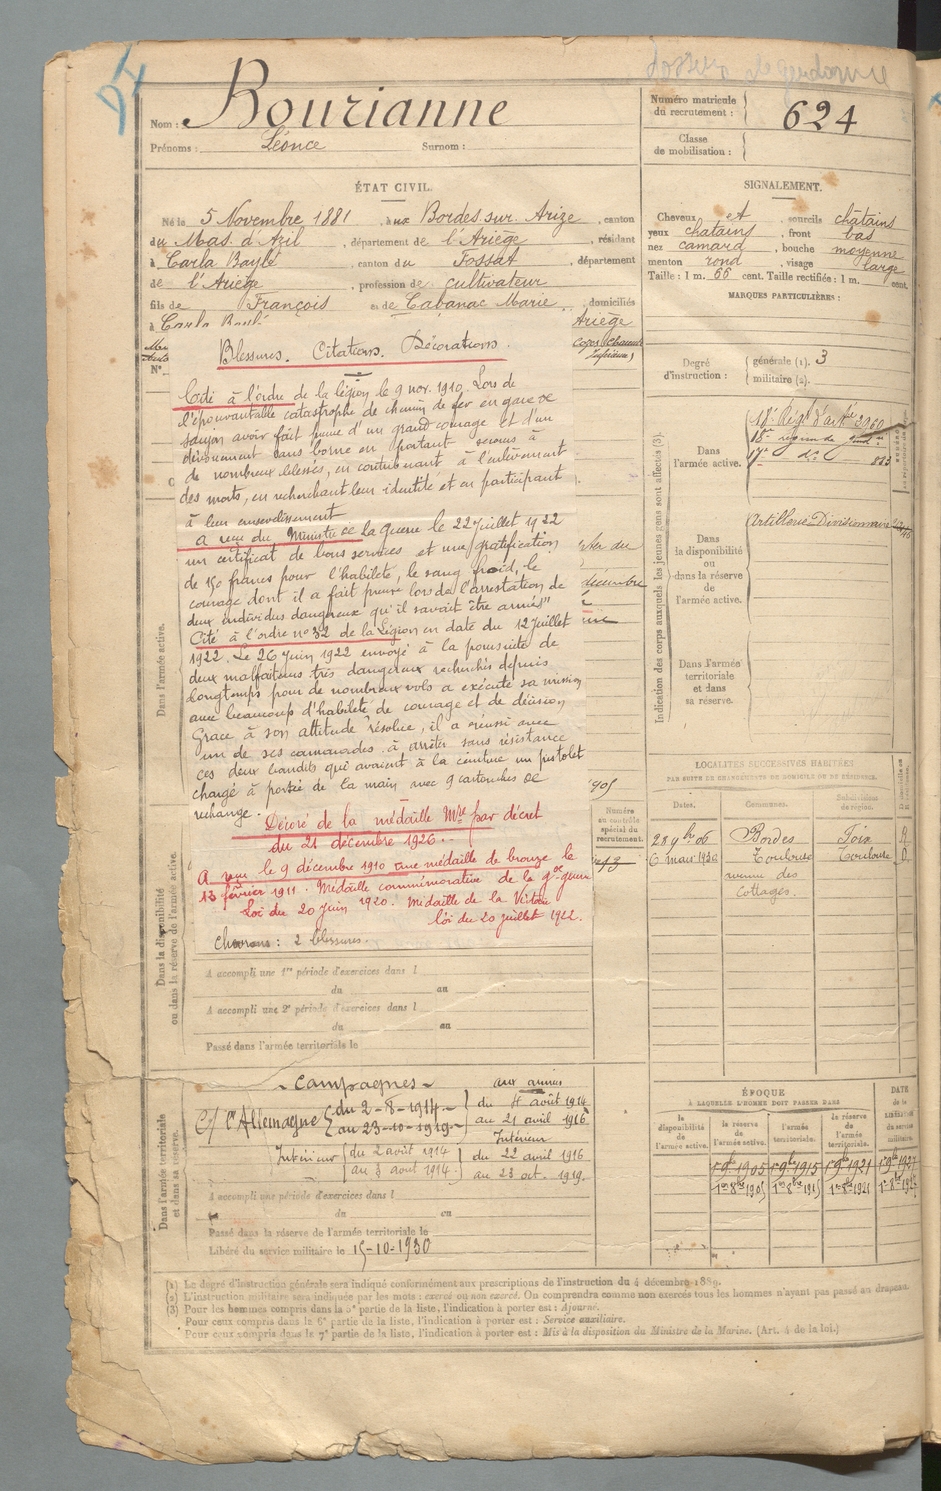 Dossier de gendarme
Nom : Bourianne
Prénoms : Léonce Surnom :
Numéro matricule
du recrutement : 624
Classe
de mobilisation :
ÉTAT CIVIL.
Né le 5 Novembre 1881, à aux Bordes-sur-Arize, canton
du Mas-d'Azil, département de l'Ariège, résidant
à Carla Bayle, canton du Fossat, département
de l'Ariège, profession de cultivateur
fils de François et de Cabanac Marie, domiciliés
à Carla Bayle
Ariège
N°
SIGNALEMENT.
Cheveux et sourcils châtains
yeux chatains, front bas
nez camard, bouche moyenne
menton rond, visage large
Taille : 1 m. 66 cent. Taille rectifiée : 1 m. cent.
MARQUES PARTICULIÈRES :
Degré
d'instruction :
générale (1). 3
militaire (2).
Blessures. Citations. Décorations.
Cité à l'ordre de la légion le 9 nov. 1910. Lors de
l'épouvantable catastrophe de chemin de fer en gare de
saujon avoir fait preuve d'un grand courage et d'un
dévouement sans borne en portant secours à
de nombreux blessés, en contribuant à l'enlèvement
des morts, en recherchant leur identité et en participant
à leur ensevelissement
A reçu du Ministre de la Guerre le 22 juillet 1922
un certificat de bons services et une gratification
de 150 francs pour l'habileté, le sang froid, le
courage dont il a fait preuve lors de l'arrestation de
deux individus dangereux qu'il savait être armés"
Cité à l'ordre n° 32 de la Légion en date du 12 juillet
1922. Le 26 juin 1922 envoyé à la poursuite de
deux malfaiteurs très dangereux recherchés depuis
longtemps pour de nombreux vols a exécuté sa mission
avec beaucoup d'habileté de courage et de décision
Grace à son attitude résolue, il a réussi avec
un de ses camarades à arrêter sans résistance
ces deux bandits qui avaient à la ceinture un pistolet
chargé à portée de la main avec 9 cartouches de
rechange.
Décoré de la médaille Mre par décret
du 21 décembre 1926.
A reçu le 9 décembre 1910 une médaille de bronze le
13 février 1911. Médaille commémorative de la gde guerre
Loi du 20 juin 1920. Médaille de la Victoire
loi du 20 juillet 1922.
chevrons : 2 blessures.
Dans l'armée active.
Dans la disponibilité
ou dans la réserve de l'armée active.
A accompli une 1re période d'exercices dans l
du au
A accompli une 2e période d'exercices dans l
du au
Passé dans l'armée territoriale le
Numéro
au contrôle
spécial du
recrutement.
Indication des corps auxquels les jeunes gens sont affectés (3).
Dans
l'armée active.
18e Régt d'artie 2960
17e do 833
Dans
la disponibilité
ou
dans la réserve
de
l'armée active.
Artillerie Divisionnaire
Dans l'armée
territoriale
et dans
sa réserve.
LOCALITÉS SUCCESSIVES HABITÉES
PAR SUITE DE CHANGEMENTS DE DOMICILE OU DE RÉSIDENCE.
Dates. Communes. Subdivision
de région.
28 9bre 06 Bordes Foix R
6 mars 1930 Toulouse Toulouse D.
avenue des
Cottages.
Dans l'armée territoriale
et dans sa réserve.
Campagnes
C/ l'Allemagne du 2-8-1914
au 23-10-1919
Intérieur du 2 août 1914
au 3 aout 1914
aux armées
du 4 août 1914
au 21 avril 1916
Intérieur
du 22 avril 1916
au 23 oct. 1919.
A accompli une période d'exercices dans l
du au
Passé dans la réserve de l'armée territoriale le
Libéré du service militaire le 15-10-1930
ÉPOQUE
À LAQUELLE L'HOMME DOIT PASSER DANS
la
disponibilité
de
l'armée active.
la réserve
de
l'armée active.
l'armée
territoriale.
la réserve
de
l'armée
territoriale.
DATE
de la
LIBÉRATION
du service
militaire.
1er 9bre 1905 1er 9bre 1915 1er 9bre 1921 1er 9bre 1927
1er 8bre 1905 1er 8bre 1915 1er 8bre 1921 1er 8bre 1927
(1) Le degré d'instruction générale sera indiqué conformément aux prescriptions de l'instruction du 4 décembre 1889.
(2) L'instruction militaire sera indiquée par les mots : exercé ou non exercé. On comprendra comme non exercés tous les hommes n'ayant pas passé au drapeau.
(3) Pour les hommes compris dans la 5e partie de la liste, l'indication à porter est : Ajourné.
Pour ceux compris dans la 6e partie de la liste, l'indication à porter est : Service auxiliaire.
Pour ceux compris dans la 7e partie de la liste, l'indication à porter est : Mis à la disposition du Ministre de la Marine. (Art. 4 de la loi.)